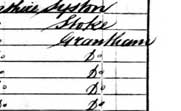 thise Syston
Stoke
Grantham
Do
Do
Do
Do